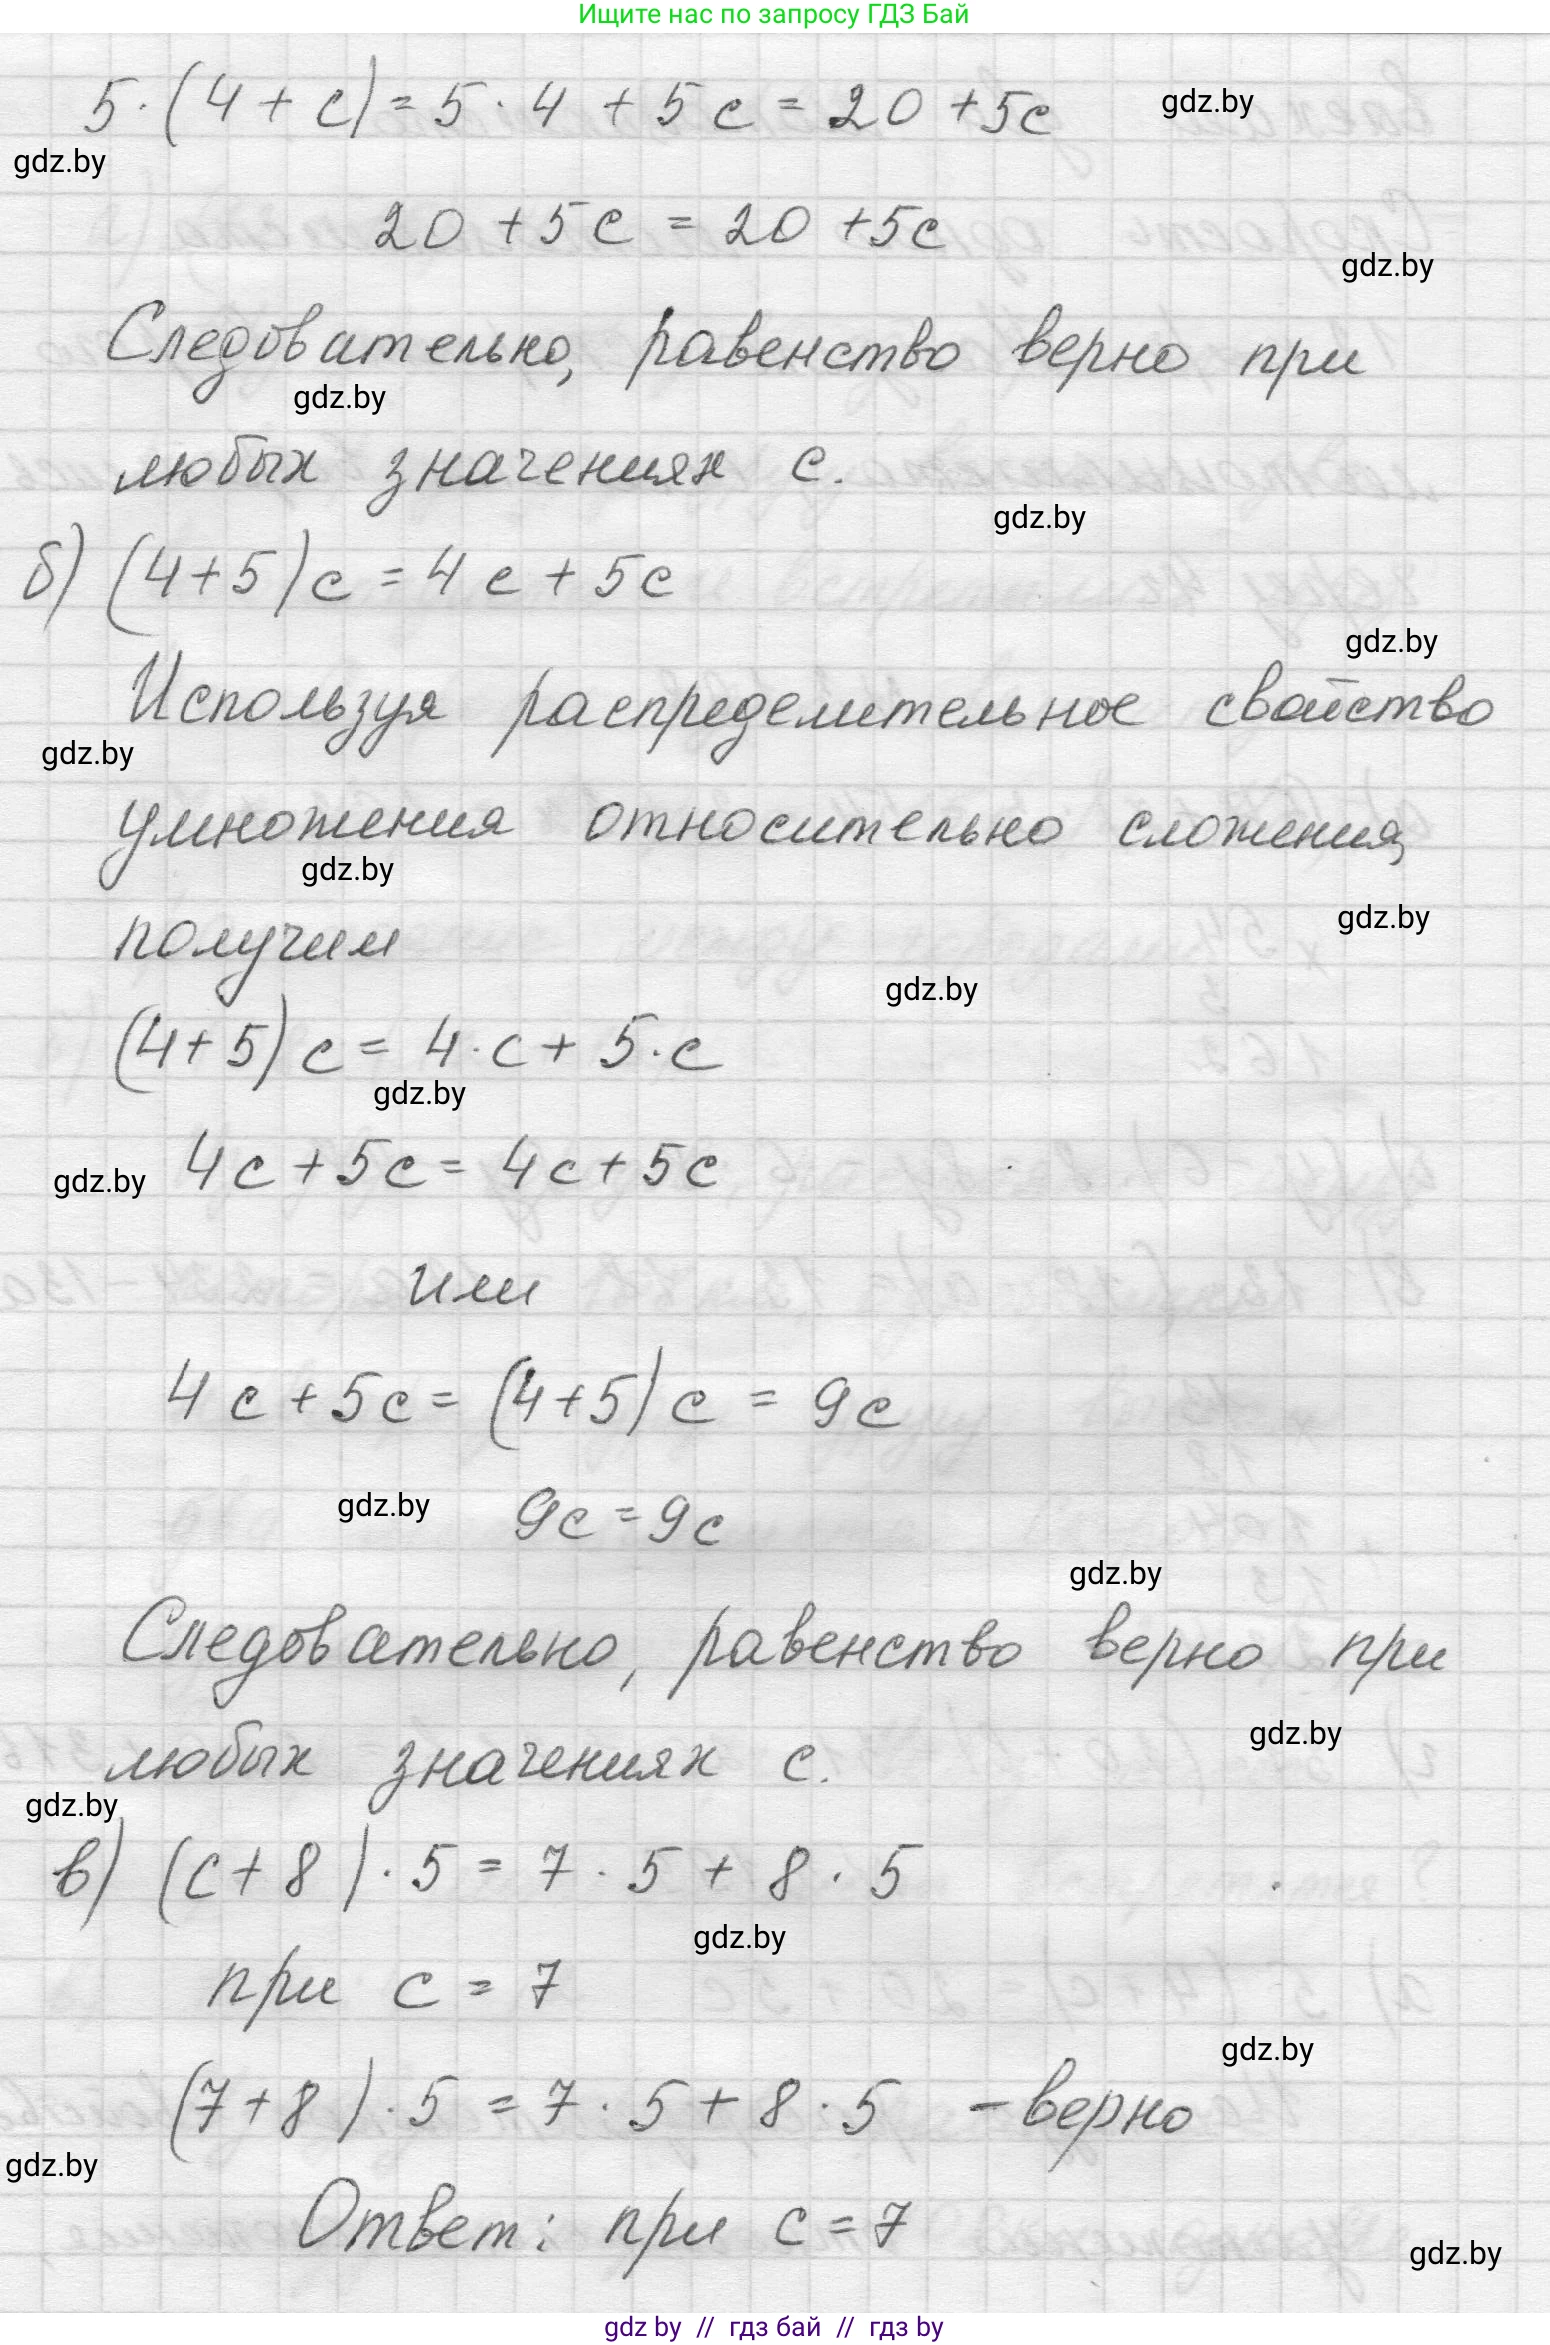 Ищите нас по запросу ГДЗ Бай
5·(4+с)=5·4+5с=20+5с
gdz.by
gdz.by
20+5с=20+5с
gdz.by
Следовательно, равенство верно при
gdz.by
любых значениях с.
gdz.by
б) (4+5)с=4с+5с
gdz.by
Используя распределительное свойство
gdz.by
умножения относительно сложения,
gdz.by
gdz.by
получим
gdz.by
(4+5)с=4·с+5·с
gdz.by
4с+5с=4с+5с
gdz.by
или
4с+5с=(4+5)с=9с
gdz.by
9с=9с
gdz.by
Следовательно, равенство верно при
gdz.by
любых значениях с.
gdz.by
в) (с+8)·5=7·5+8·5
gdz.by
при с=7
gdz.by
(7+8)·5=7·5+8·5 - верно
gdz.by
Ответ: при с=7
gdz.by
gdz by // гдз бай // гдз by